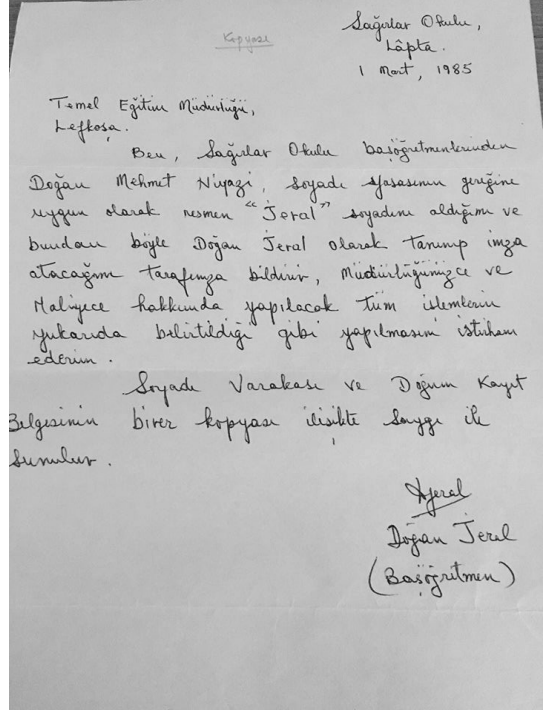 Kopyası
Sağırlar Okulu,
Lâpta.
1 Mart, 1985
Temel Eğitim Müdürlüğü,
Lefkoşa.
Ben, Sağırlar Okulu başöğretmenlerinden
Doğan Mehmet Niyazi, soyadı yasasının gereğine
uygun olarak resmen "Jeral" soyadını aldığımı ve
bundan böyle Doğan Jeral olarak tanınıp imza
atacağımı tarafınıza bildirir, Müdürlüğünüzce ve
Maliyece hakkımda yapılacak tüm işlemlerin
yukarıda belirtildiği gibi yapılmasını istirham
ederim.
Soyadı Varakası ve Doğum Kayıt
Belgesinin birer kopyası ilişikte saygı ile
sunulur.
Doğan Jeral
(Başöğretmen)